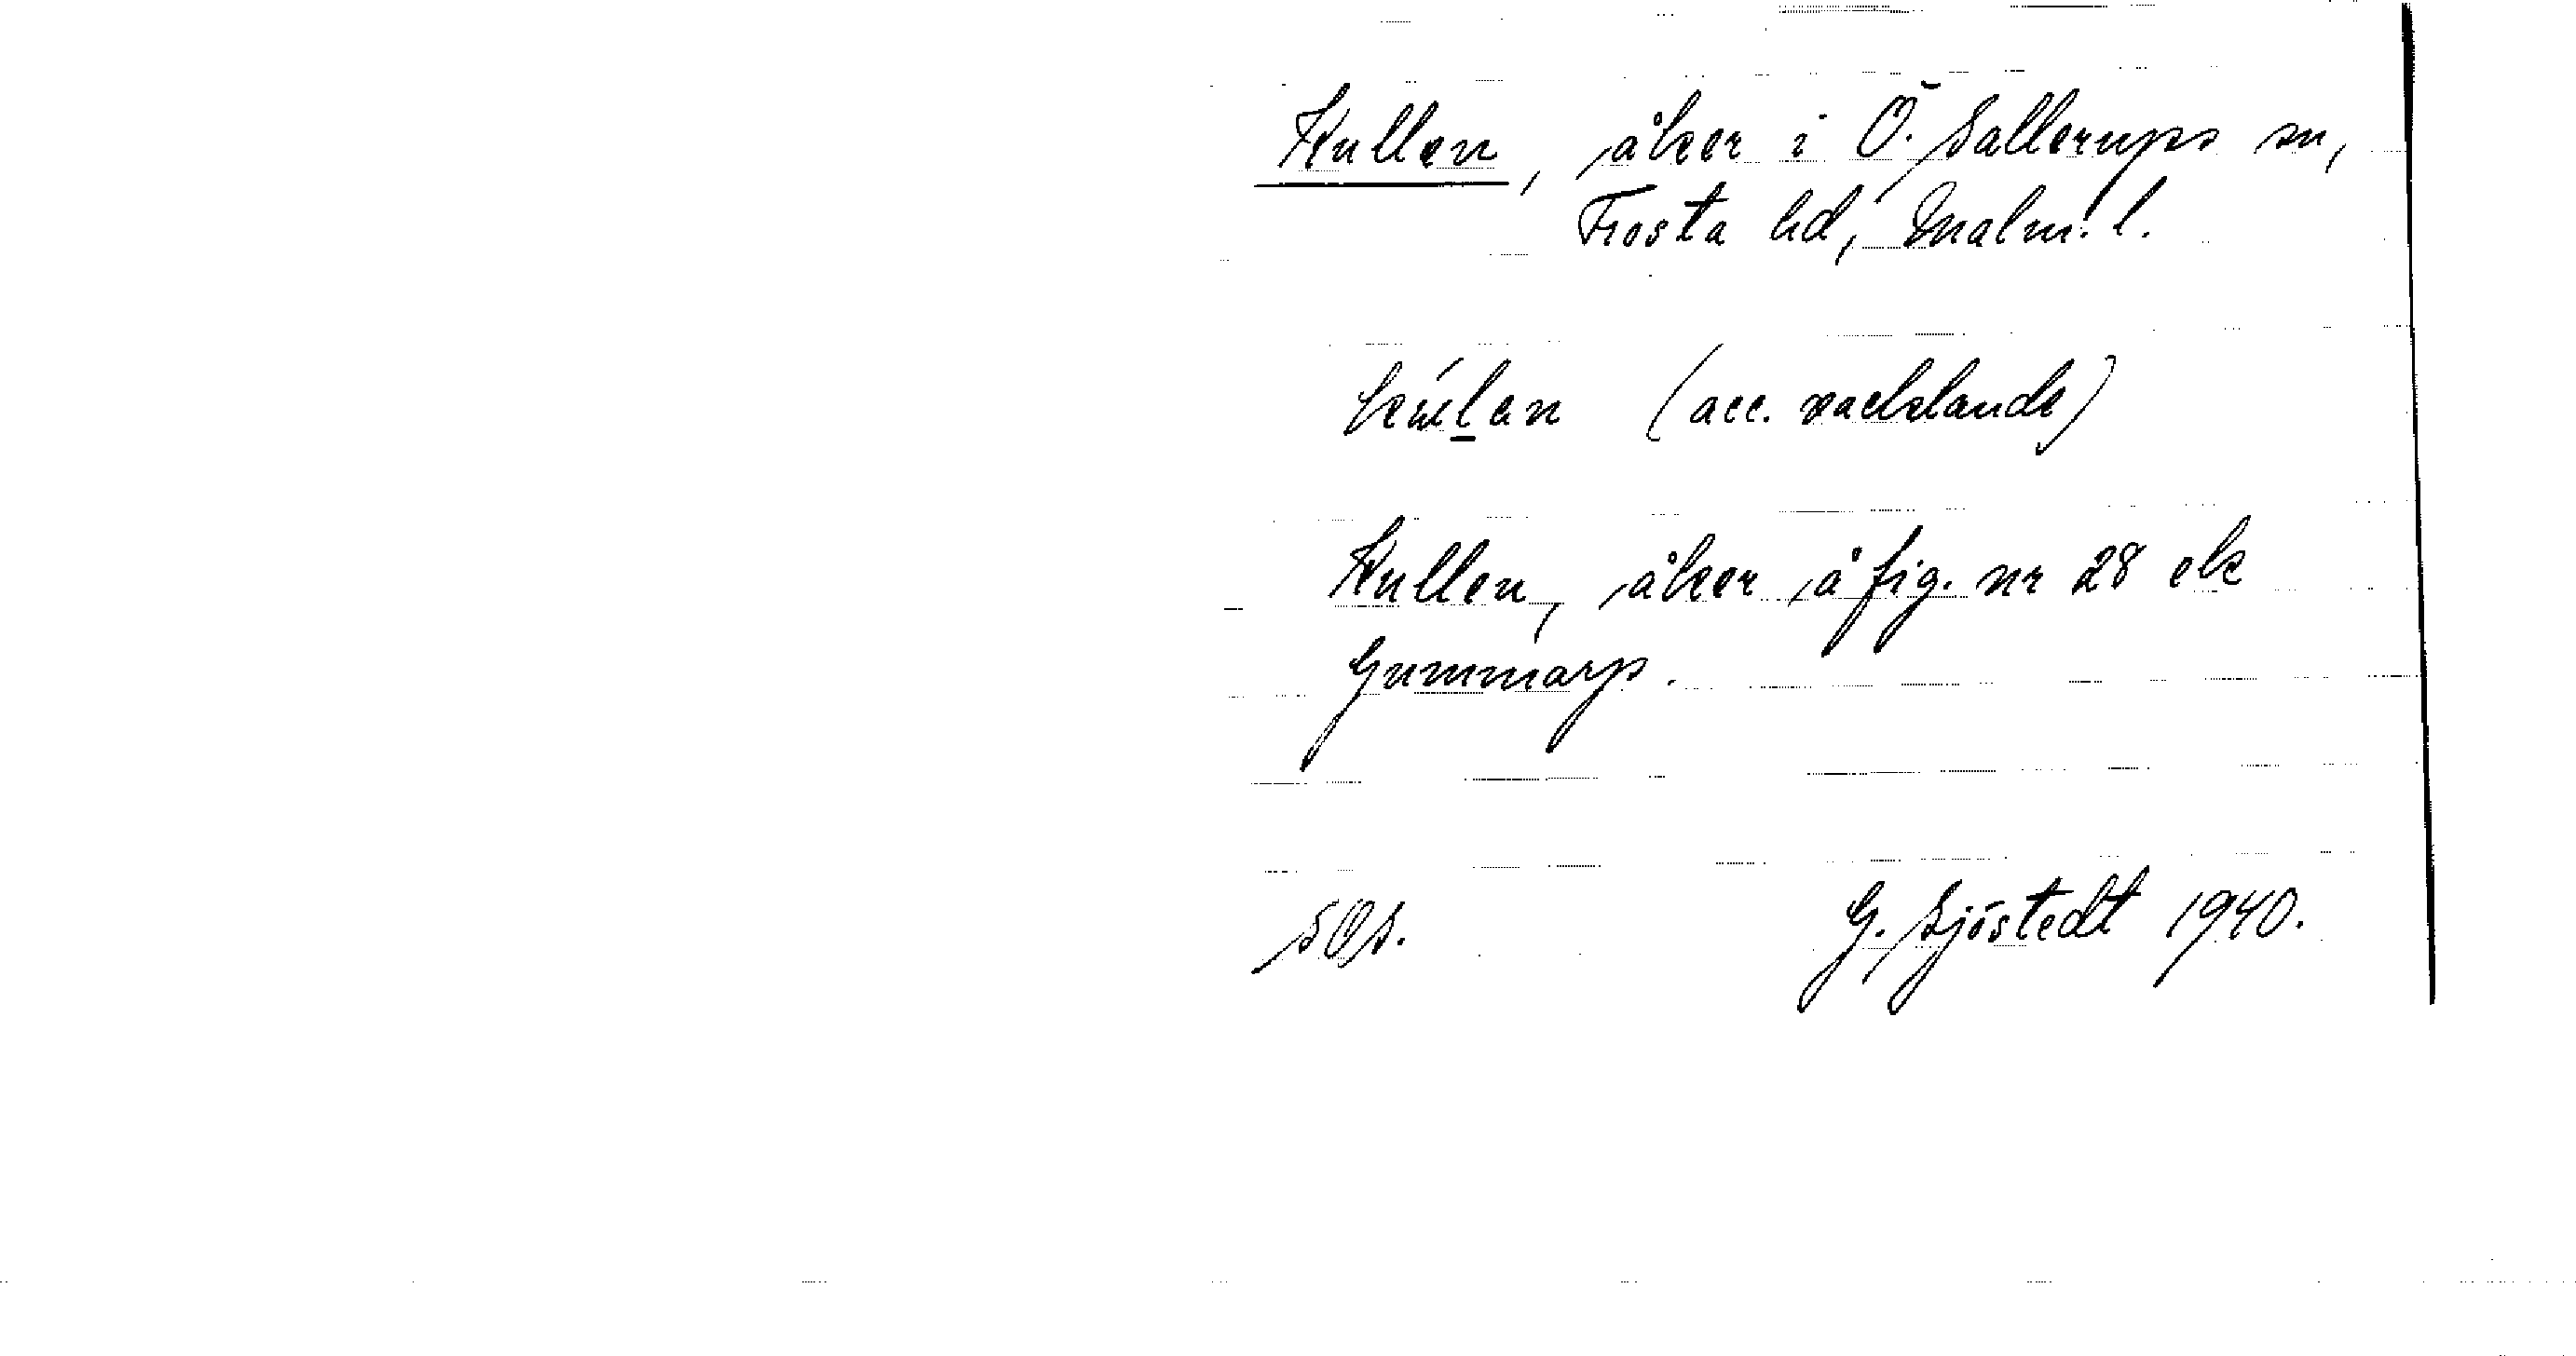 Kullen, åker i Ö. Sallerups sn,
Frosta hd, Malm. l.
(acc. vacklande)
Kullen, åker å fig. nr 28 ek
Gummarp.
SOS. G. Sjöstedt 1940.